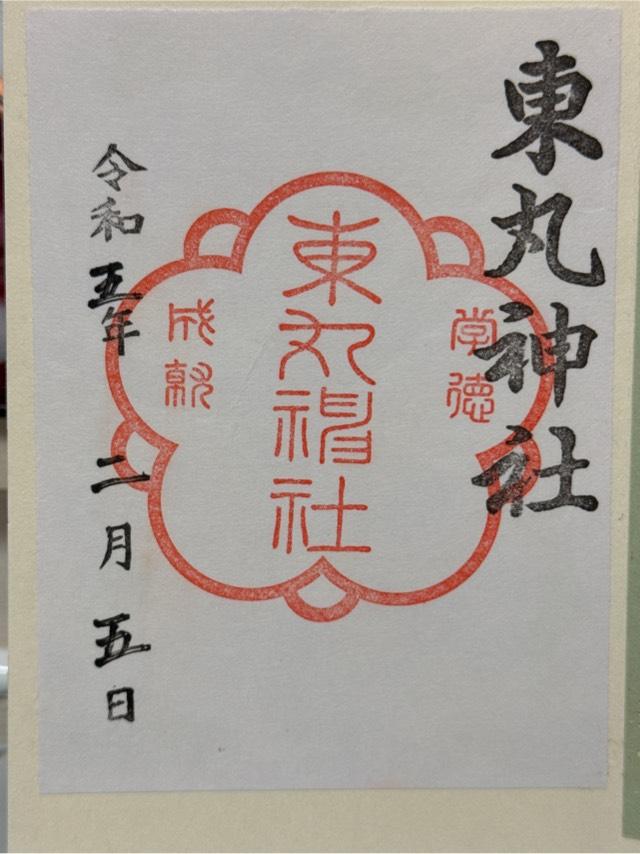 東丸神社
学徳
東丸神社
成就
令和五年 二月 五日